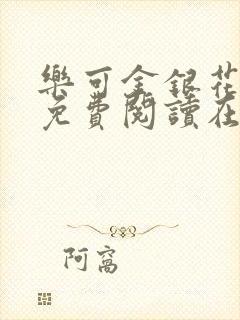 樂可金銀花
免費閱讀在
阿窩